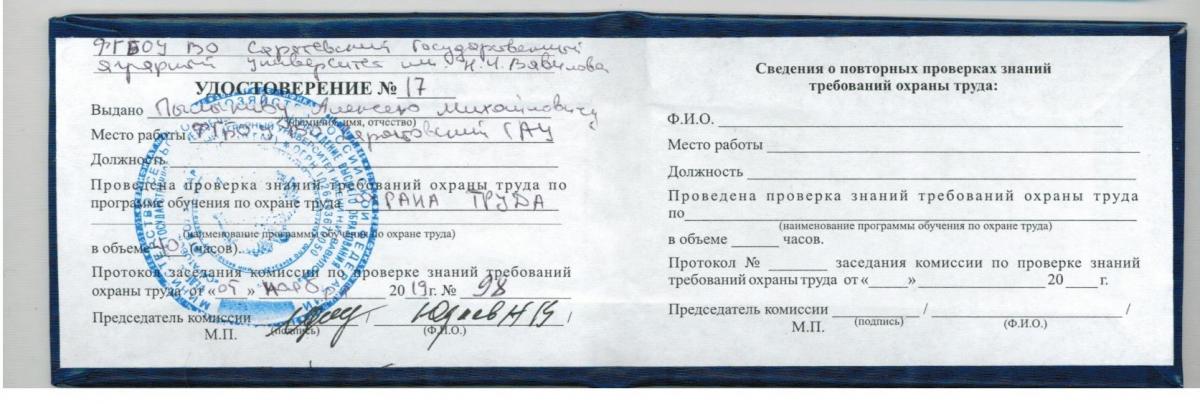 ФГБОУ ВО Саратовский Государственный
Аграрный Университет им. Н.И. Вавилова
УДОСТОВЕРЕНИЕ № 17
Выдано Алексею Михайловичу
(фамилия, имя, отчество)
Место работы ФГБОУ ВО Саратовский ГАУ
Должность
Проведена проверка знаний требований охраны труда по
программе обучения по охране труда ОХРАНА ТРУДА
(наименование программы обучения по охране труда)
в объеме 40 (часов)
Протокол заседания комиссии по проверке знаний требований
охраны труда от «01» марта 2019 г. № 98
Председатель комиссии / /
М.П. (подпись) (Ф.И.О.)
Сведения о повторных проверках знаний
требований охраны труда:
Ф.И.О.
Место работы
Должность
Проведена проверка знаний требований охраны труда
по
(наименование программы обучения по охране труда)
в объеме часов.
Протокол № заседания комиссии по проверке знаний
требований охраны труда от « » 20 г.
Председатель комиссии / /
М.П. (подпись) (Ф.И.О.)